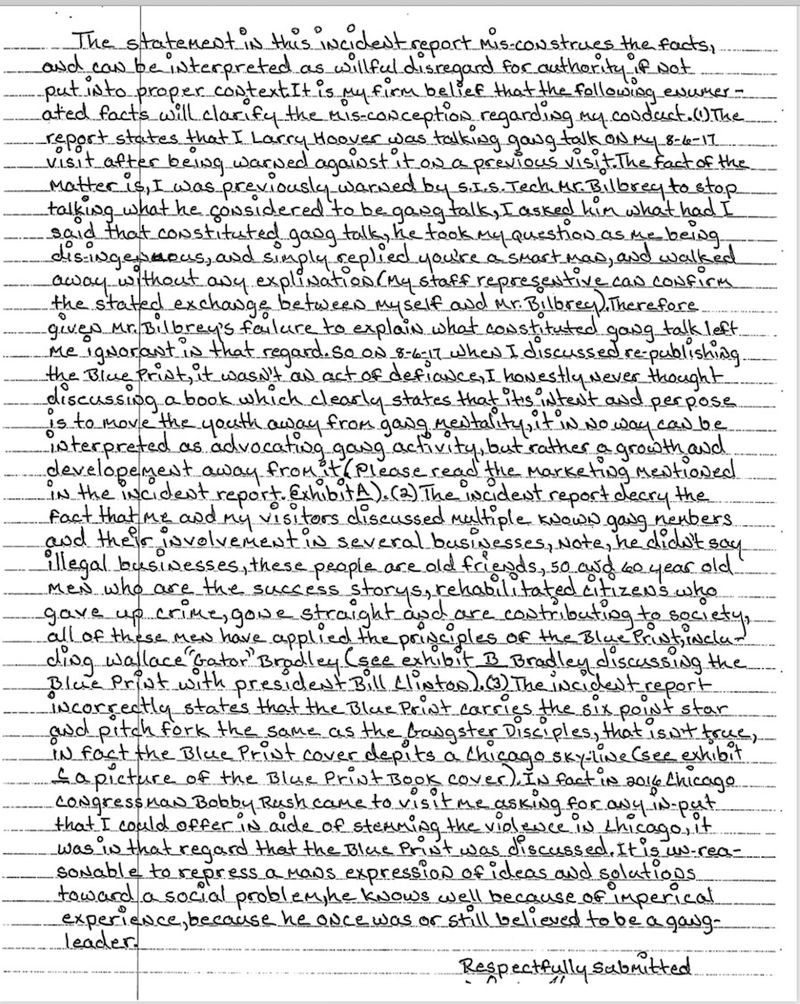 The statement in this incident report mis-construes the facts,
and can be interpreted as willful disregard for authority if not
put into proper context. It is my firm belief that the following enumer-
ated facts will clarify the mis-conception regarding my conduct. (1) The
report states that I Larry Hoover was talking gang talk on my 8-6-17
visit after being warned against it on a previous visit. The fact of the
matter is, I was previously warned by S.I.S. Tech. Mr. Bilbrey to stop
talking what he considered to be gang talk, I asked him what had I
said that constituted gang talk, he took my question as me being
dis-ingenuous, and simply replied you're a smart man, and walked
away without any explination (My staff representive can confirm
the stated exchange between myself and Mr. Bilbrey). Therefore
given Mr. Bilbrey's failure to explain what constituted gang talk left
me ignorant in that regard. So on 8-6-17 when I discussed re-publishing
the Blue Print, it wasn't an act of defiance, I honestly never thought
discussing a book which clearly states that its intent and perpose
is to move the youth away from gang mentality, it in no way can be
interpreted as advocating gang activity, but rather a growth and
developement away from it (Please read the marketing mentioned
in the incident report. Exhibit A). (2) The incident report decry the
fact that me and my visitors discussed multiple known gang members
and their involvement in several businesses, note, he didn't say
illegal businesses, these people are old friends, 50 and 60 year old
men who are the success storys, rehabilitated citizens who
gave up crime, gone straight and are contributing to society,
all of these men have applied the principles of the Blue Print, inclu-
ding Wallace "Gator" Bradley (see exhibit B Bradley discussing the
Blue Print with president Bill Clinton). (3) The incident report
incorrectly states that the Blue Print carries the six point star
and pitch fork the same as the Gangster Disciples, that isn't true,
in fact the Blue Print cover depits a Chicago sky-line (see exhibit
C a picture of the Blue Print Book cover). In fact in 2016 Chicago
congressman Bobby Rush came to visit me asking for any in-put
that I could offer in aide of stemming the violence in Chicago, it
was in that regard that the Blue Print was discussed. It is un-rea-
sonable to repress a mans expression of ideas and solutions
toward a social problem, he knows well because of imperical
experience, because he once was or still believed to be a gang-
leader.
Respectfully submitted